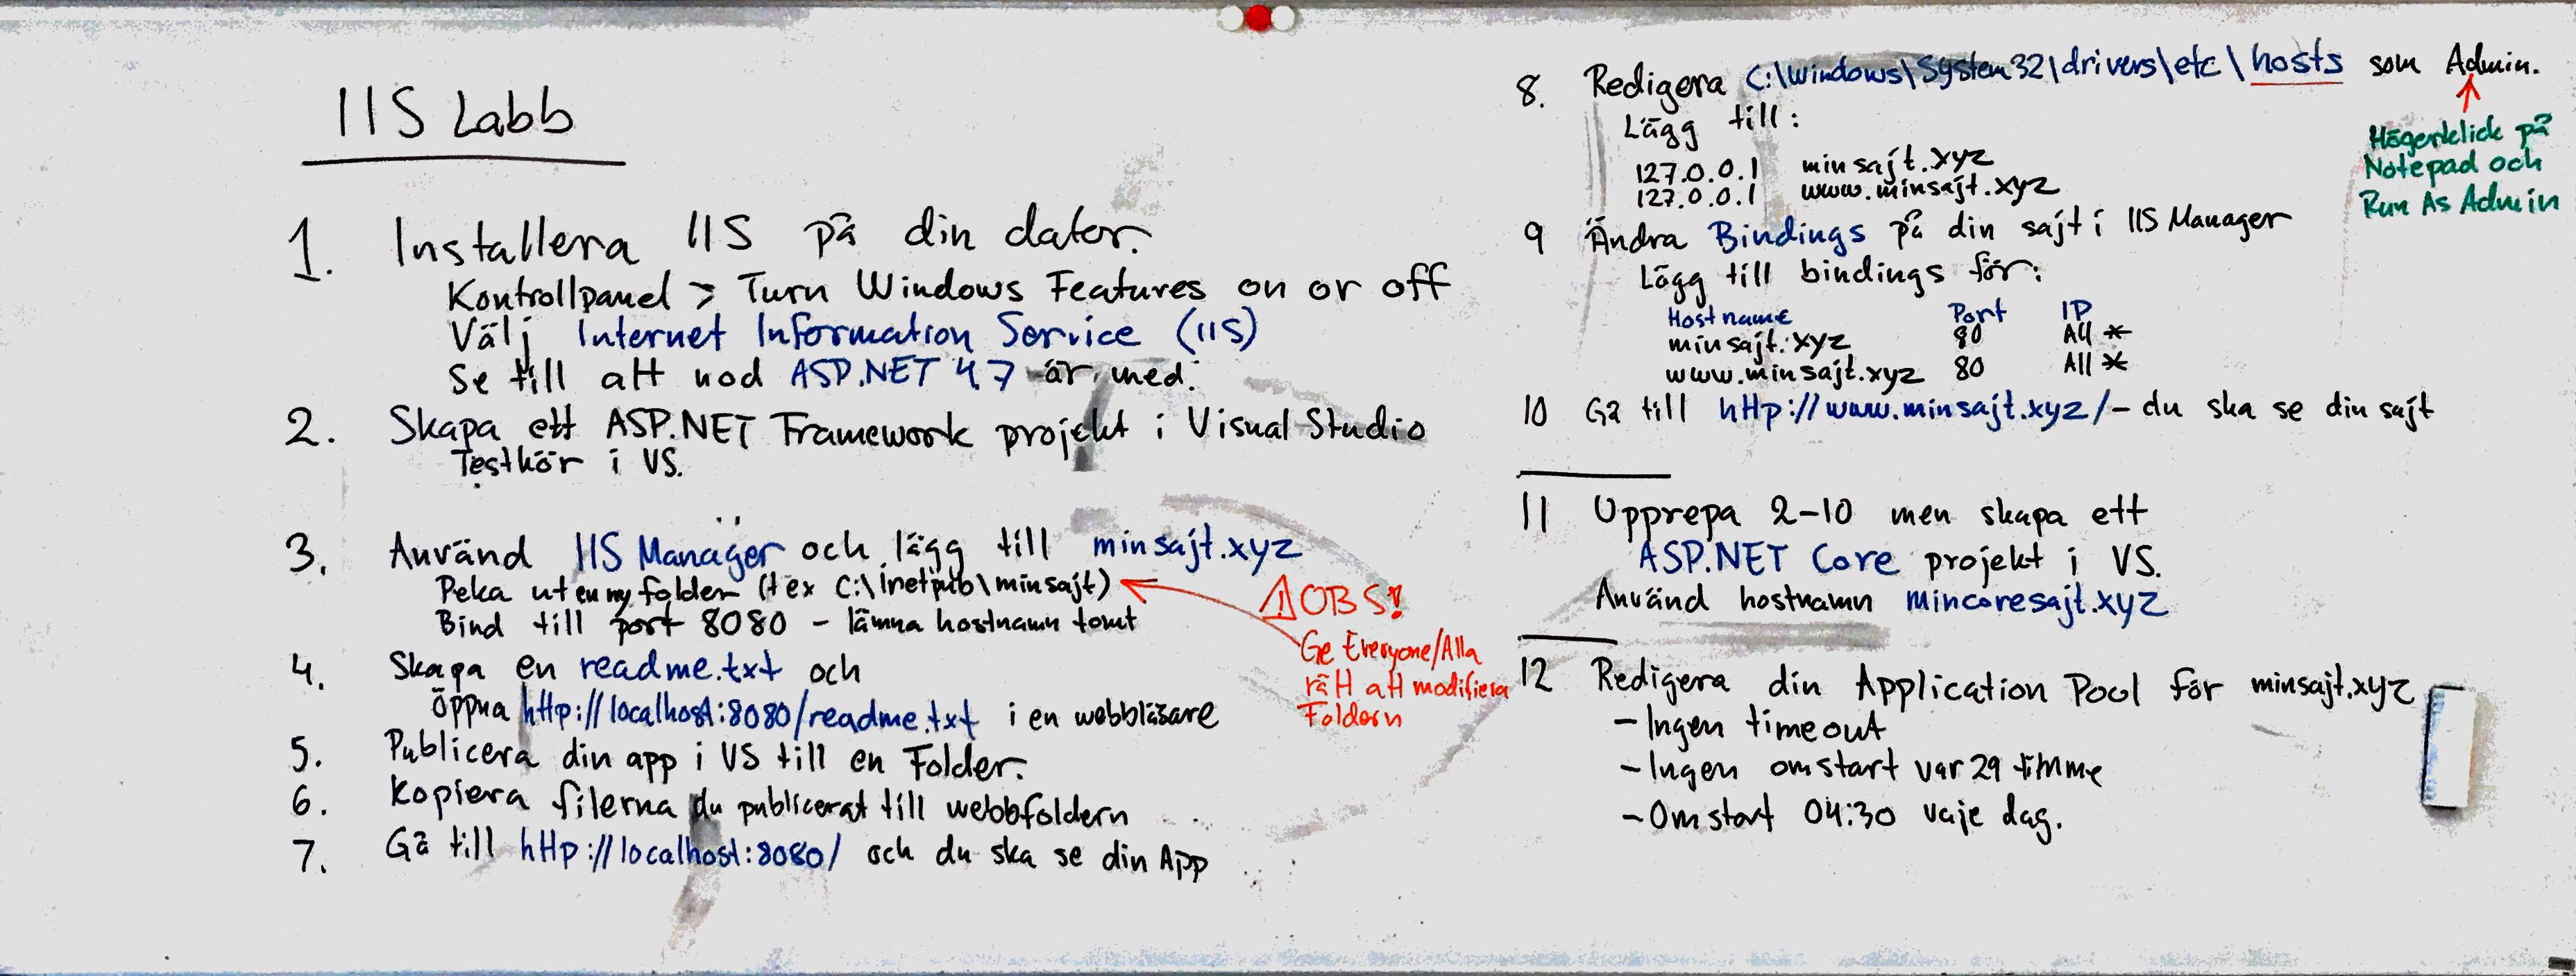 IIS Labb
1. Installera IIS på din dator.
Kontrollpanel > Turn Windows Features on or off
Välj Internet Information Service (IIS)
Se till att nod ASP.NET 4.7 är med.
2. Skapa ett ASP.NET Framework projekt i Visual Studio
Testkör i VS.
3. Använd IIS Manager och lägg till minsajt.xyz
Peka ut en ny folder (tex C:\inetpub\minsajt)
Bind till port 8080 - lämna hostnamn tomt
⚠ OBS!
Ge Everyone/Alla
rätt att modifiera
Foldern
4. Skapa en readme.txt och
öppna http://localhost:8080/readme.txt i en webbläsare
5. Publicera din app i VS till en Folder.
6. Kopiera filerna du publicerat till webbfoldern
7. Gå till http://localhost:8080/ och du ska se din App
8. Redigera C:\Windows\System32\drivers\etc\hosts som Admin.
Högerklick på
Notepad och
Run As Admin
Lägg till:
127.0.0.1 minsajt.xyz
127.0.0.1 www.minsajt.xyz
9 Ändra Bindings på din sajt i IIS Manager
Lägg till bindings för:
Hostname Port IP
minsajt.xyz 80 All *
www.minsajt.xyz 80 All *
10 Gå till http://www.minsajt.xyz/ - du ska se din sajt
11 Upprepa 2-10 men skapa ett
ASP.NET Core projekt i VS.
Använd hostnamn mincoresajt.xyz
12 Redigera din Application Pool för minsajt.xyz
- Ingen timeout
- Ingen omstart var 29 timme
- Omstart 04:30 vaje dag.